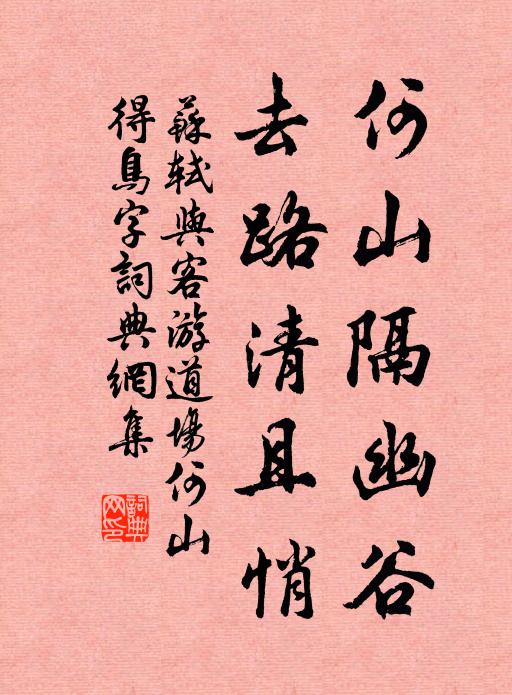 何山隔幽谷
去路清且悄
蘇軾與客游道場何山
得鳥字詞典網集
詞典
网印